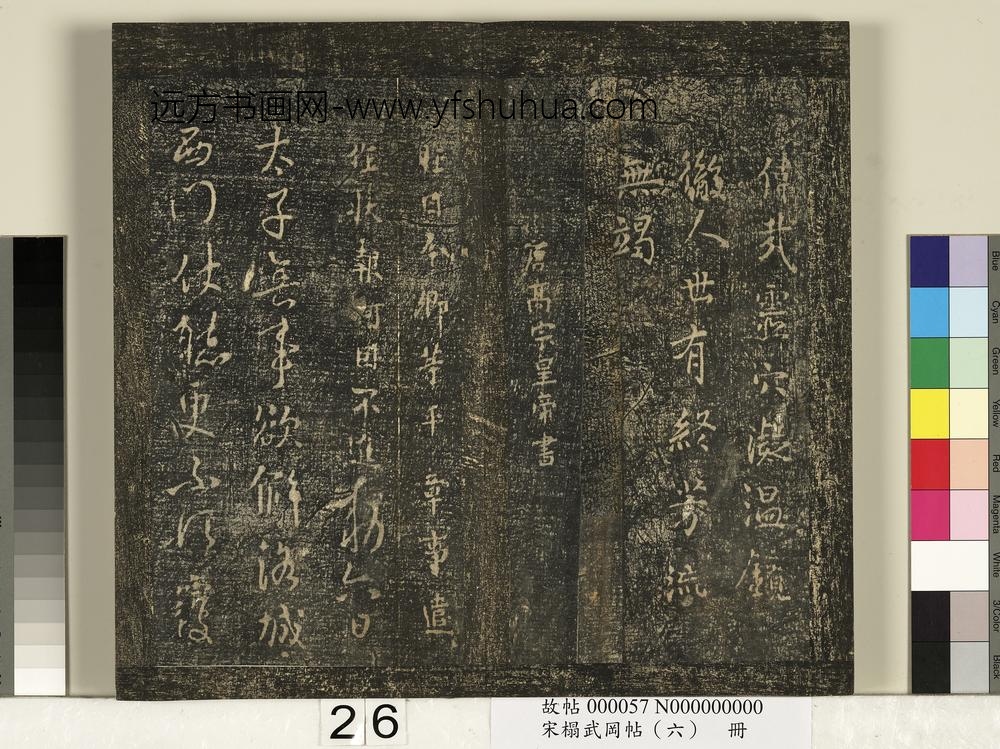 远方书画网-www.yfshuhua.com
偉哉靈穴凝温鏡
徹人世有終芳流
無竭
唐高宗皇帝書
昨日卿等平章事遣
狀報何因不進六日
太子事欲解洛城
西門更不須
26
故帖 000057 N000000000
宋榻武岡帖（六） 冊
Blue
Cyan
Green
Yellow
Red
Magenta
White
3/Color
Black